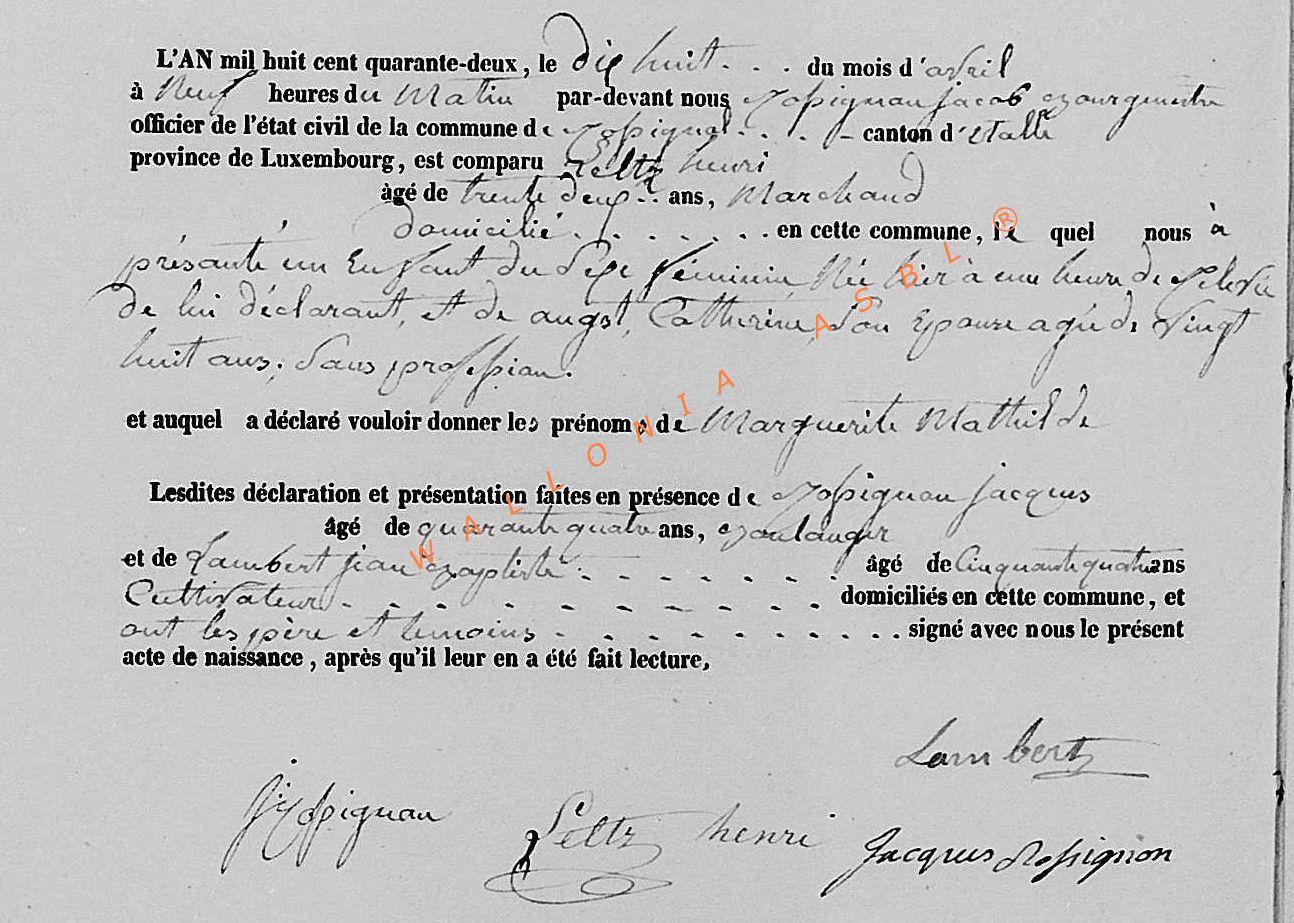 L'AN mil huit cent quarante-deux, le dix huit . . . du mois d'avril
à Neuf heures du Matin par-devant nous Rossignon jacob Bourgmestre
officier de l'état civil de la commune de Rossignol . . . canton d'Etalle
province de Luxembourg, est comparu Feltz henri
âgé de trente deux . . ans, Marchand
domicilié . . . . . . . en cette commune, le quel nous à
présanté un Enfant du Sexe féminin, Née hier à une heure de
de lui déclarant, et de augst, Catherine, Son Epouse agée de Vingt
huit ans, Sans profession.
et auquel a déclaré vouloir donner les prénoms de Marguerite Mathilde
Lesdites déclaration et présentation faites en présence de Rossignon jacques
âgé de quarante quatre ans, Boulanger
et de Lambert jean Baptiste . . . . . . . . âgé de Cinquante quatre ans
Cultivateur . . . . . . . . . . . domiciliés en cette commune, et
ont les père et temoins . . . . . . . . . . signé avec nous le présent
acte de naissance, après qu'il leur en a été fait lecture,
Lambert
J Rossignon
Feltz henri
Jacques Rossignon
WALLONIA ASBL ®